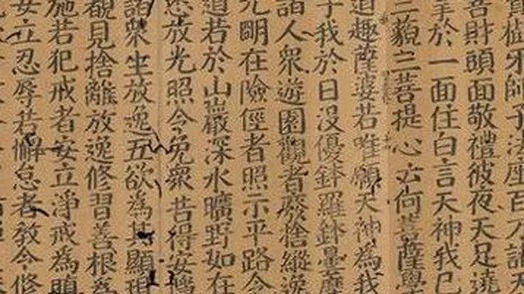 樹師子法座百諸天
善財頭面敬禮彼夜天足遶
於一面住白言天神我已
三藐三菩提心云何菩薩學
道趣薩婆若唯願天神為我
子我於日没優鉢羅鉢曇摩
諸人衆遊園觀者廢捨縱逸
光明在險徑者照示平路令
道若於山巖深水曠野如在
放光照令免衆苦得安隱
諸衆生放逸五欲為其顯現
觀見捨離放逸修習善根為
施若犯戒者安立淨戒為
安立忍辱若懈怠者教令修